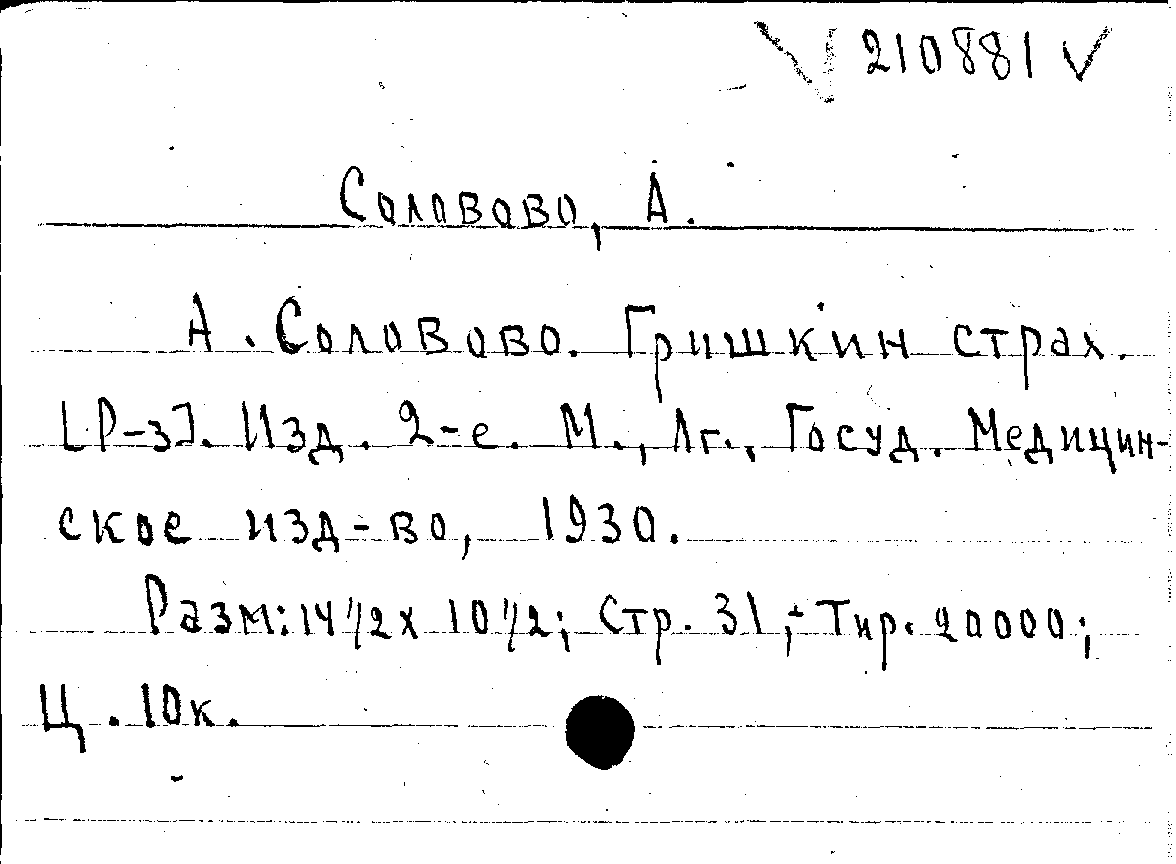 210881
Соловово, А.
А. Соловово. Гришкин страх.
[Р-з]. Изд. 2-е. М., Лг., Госуд. Медицин-
ское изд-во, 1930.
Разм: 14 1/2 х 10 1/2; Стр. 31; Тир. 20000;
Ц. 10к.